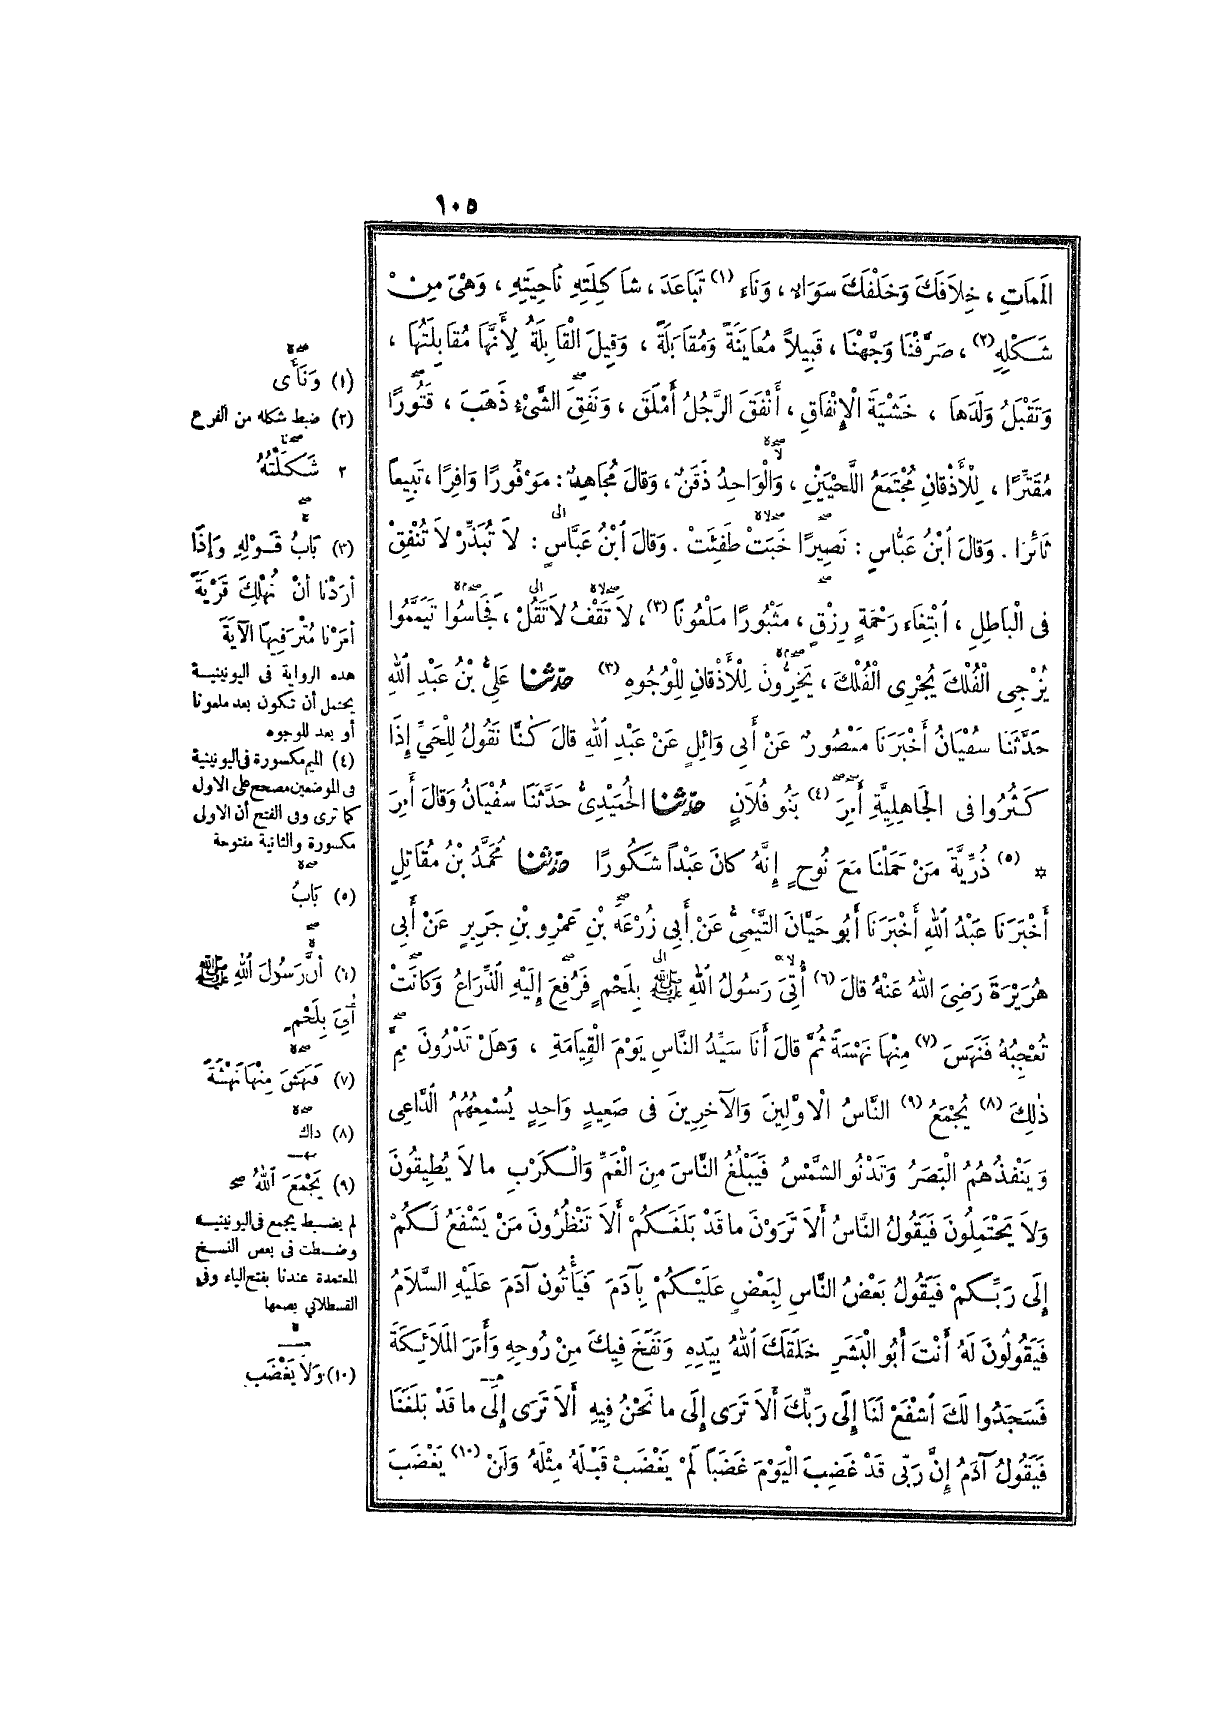 ١٠٥
الْمَمَاتِ ، خِلَافَكَ وَخَلْفَكَ سَوَاءٌ ، وَنَاءَ (١) تَبَاعَدَ ، شَاكِلَتِهِ نَاحِيَتِهِ ، وَهْىَ مِنْ
شَكْلِهِ (٢) ، صَرَّفْنَا وَجَّهْنَا ، قَبِيلاً مُعَايَنَةً وَمُقَابَلَةً ، وَقِيلَ الْقَابِلَةُ لِأَنَّهَا مُقَابِلَتُهَا ،
وَتَقْبَلُ وَلَدَهَا ، خَشْيَةَ الْإِنْفَاقِ ، أَنْفَقَ الرَّجُلُ أَمْلَقَ ، وَنَفِقَ الشَّىْءُ ذَهَبَ ، قَتُورًا
مُقَتِّرًا ، لِلْأَذْقَانِ مُجْتَمَعُ اللَّحْيَيْنِ ، وَالْوَاحِدُ ذَقَنٌ ، وَقَالَ مُجَاهِدٌ : مَوْفُورًا وَافِرًا ، تَبِيعًا
ثَائِرًا . وَقَالَ ابْنُ عَبَّاسٍ : نَصِيرًا خَبَتْ طَفِئَتْ . وَقَالَ ابْنُ عَبَّاسٍ : لاَ تُبَذِّرْ لاَ تُنْفِقْ
فِى الْبَاطِلِ ، ابْتِغَاءَ رَحْمَةٍ رِزْقٍ ، مَثْبُورًا مَلْعُونًا (٣) ، لاَ تَقْفُ لاَ تَقُلْ ، فَجَاسُوا تَيَمَّمُوا
يُزْجِى الْفُلْكَ يُجْرِى الْفُلْكَ ، يَخِرُّونَ لِلْأَذْقَانِ لِلْوُجُوهِ (٣) حَدَّثَنَا عَلِىُّ بْنُ عَبْدِ اللهِ
حَدَّثَنَا سُفْيَانُ أَخْبَرَنَا مَنْصُورٌ عَنْ أَبِى وَائِلٍ عَنْ عَبْدِ اللهِ قَالَ كُنَّا نَقُولُ لِلْحَىِّ إِذَا
كَثُرُوا فِى الْجَاهِلِيَّةِ أَمِرَ (٤) بَنُو فُلاَنٍ حَدَّثَنَا الْحُمَيْدِىُّ حَدَّثَنَا سُفْيَانُ وَقَالَ أَمِرَ
* (٥) ذُرِّيَّةَ مَنْ حَمَلْنَا مَعَ نُوحٍ إِنَّهُ كَانَ عَبْداً شَكُورًا حَدَّثَنَا مُحَمَّدُ بْنُ مُقَاتِلٍ
أَخْبَرَنَا عَبْدُ اللهِ أَخْبَرَنَا أَبُو حَيَّانَ التَّيْمِىُّ عَنْ أَبِى زُرْعَةَ بْنِ عَمْرِو بْنِ جَرِيرٍ عَنْ أَبِى
هُرَيْرَةَ رَضِىَ اللهُ عَنْهُ قَالَ (٦) أُتِىَ رَسُولُ اللهِ ﷺ بِلَحْمٍ فَرُفِعَ إِلَيْهِ الذِّرَاعُ وَكَانَتْ
تُعْجِبُهُ فَنَهَسَ (٧) مِنْهَا نَهْسَةً ثُمَّ قَالَ أَنَا سَيِّدُ النَّاسِ يَوْمَ الْقِيَامَةِ ، وَهَلْ تَدْرُونَ مِمَّ
ذٰلِكَ (٨) يُجْمَعُ (٩) النَّاسُ الْاوَّلِينَ وَالْآخِرِينَ فِى صَعِيدٍ وَاحِدٍ يُسْمِعُهُمُ الدَّاعِى
وَيَنْفُذُهُمُ الْبَصَرُ وَتَدْنُو الشَّمْسُ فَيَبْلُغُ النَّاسَ مِنَ الْغَمِّ وَالْكَرْبِ مَا لاَ يُطِيقُونَ
وَلاَ يَحْتَمِلُونَ فَيَقُولُ النَّاسُ أَلاَ تَرَوْنَ مَا قَدْ بَلَغَكُمْ أَلاَ تَنْظُرُونَ مَنْ يَشْفَعُ لَكُمْ
إِلَى رَبِّكُمْ فَيَقُولُ بَعْضُ النَّاسِ لِبَعْضٍ عَلَيْكُمْ بِآدَمَ فَيَأْتُونَ آدَمَ عَلَيْهِ السَّلاَمُ
فَيَقُولُونَ لَهُ أَنْتَ أَبُو الْبَشَرِ خَلَقَكَ اللهُ بِيَدِهِ وَنَفَخَ فِيكَ مِنْ رُوحِهِ وَأَمَرَ الْمَلاَئِكَةَ
فَسَجَدُوا لَكَ اشْفَعْ لَنَا إِلَى رَبِّكَ أَلاَ تَرَى إِلَى مَا نَحْنُ فِيهِ أَلاَ تَرَى إِلَى مَا قَدْ بَلَغَنَا
فَيَقُولُ آدَمُ إِنَّ رَبِّى قَدْ غَضِبَ الْيَوْمَ غَضَباً لَمْ يَغْضَبْ قَبْلَهُ مِثْلَهُ وَلَنْ (١٠) يَغْضَبَ
(١) وَنَأَى
(٢) ضبط شكله من الفرع
٢ شَكَلْتُهُ
(٣) بَابُ قَوْلِهِ وَإِذَا
أَرَدْنَا أَنْ نُهْلِكَ قَرْيَةً
أَمَرْنَا مُتْرَفِيهَا الآيَةَ
هذه الرواية فى اليونينية
يحتمل أن تكون بعد ملعونا
أو بعد للوجوه
(٤) الميم مكسورة فى اليونينية
فى الموضعين مصحح على الاول
كما ترى وفى الفتح أن الاولى
مكسورة والثانية مفتوحة
(٥) بَابُ
(٦) أَنَّ رَسُولَ اللهِ ﷺ
أُتِىَ بِلَحْمٍ
(٧) فَنَهَشَ مِنْهَا نَهْشَةً
(٨) ذاك
(٩) يَجْمَعَ اللهُ صح
لم يضبط يجمع فى اليونينية
وضبطت فى بعض النسخ
المعتمدة عندنا بفتح الياء وفى
القسطلانى بضمها
(١٠) وَلاَ يَغْضَبُ